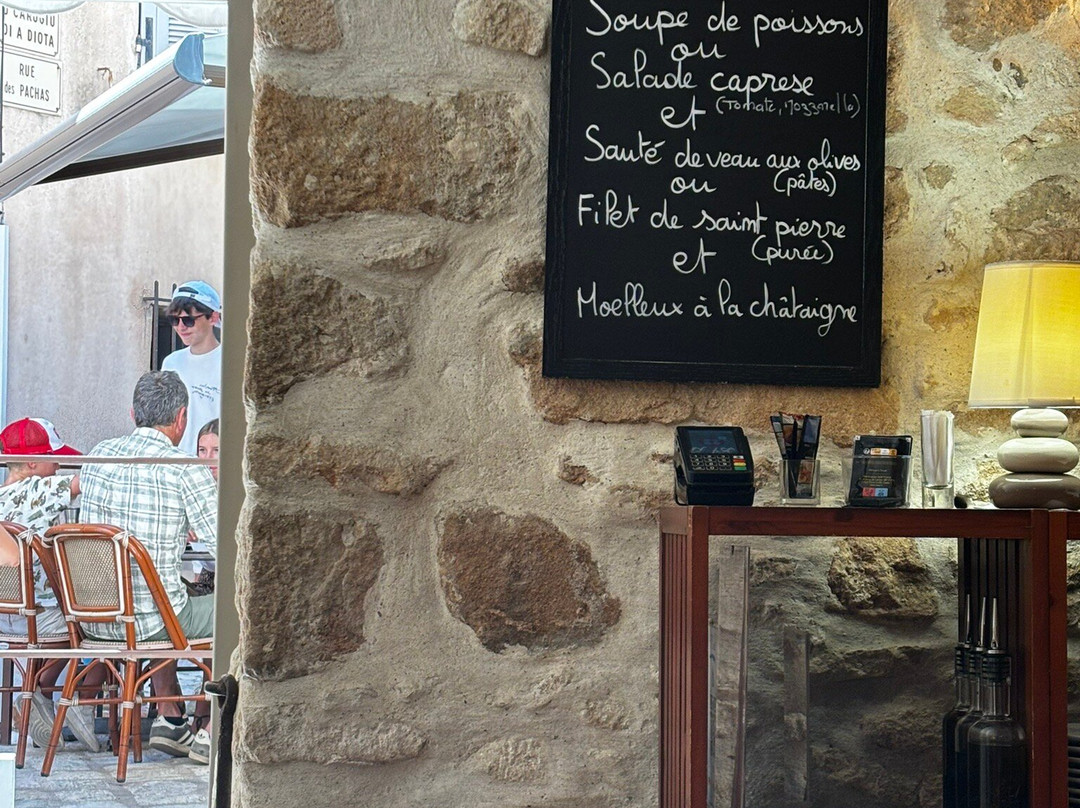 U CARÙGIU
DI A DIOTA
RUE
des PACHAS
Soupe de poissons
ou
Salade caprese
et (Tomate, mozzarella)
Sauté de veau aux olives
ou (pâtes)
Filet de saint pierre
et (purée)
Moelleux à la châtaigne